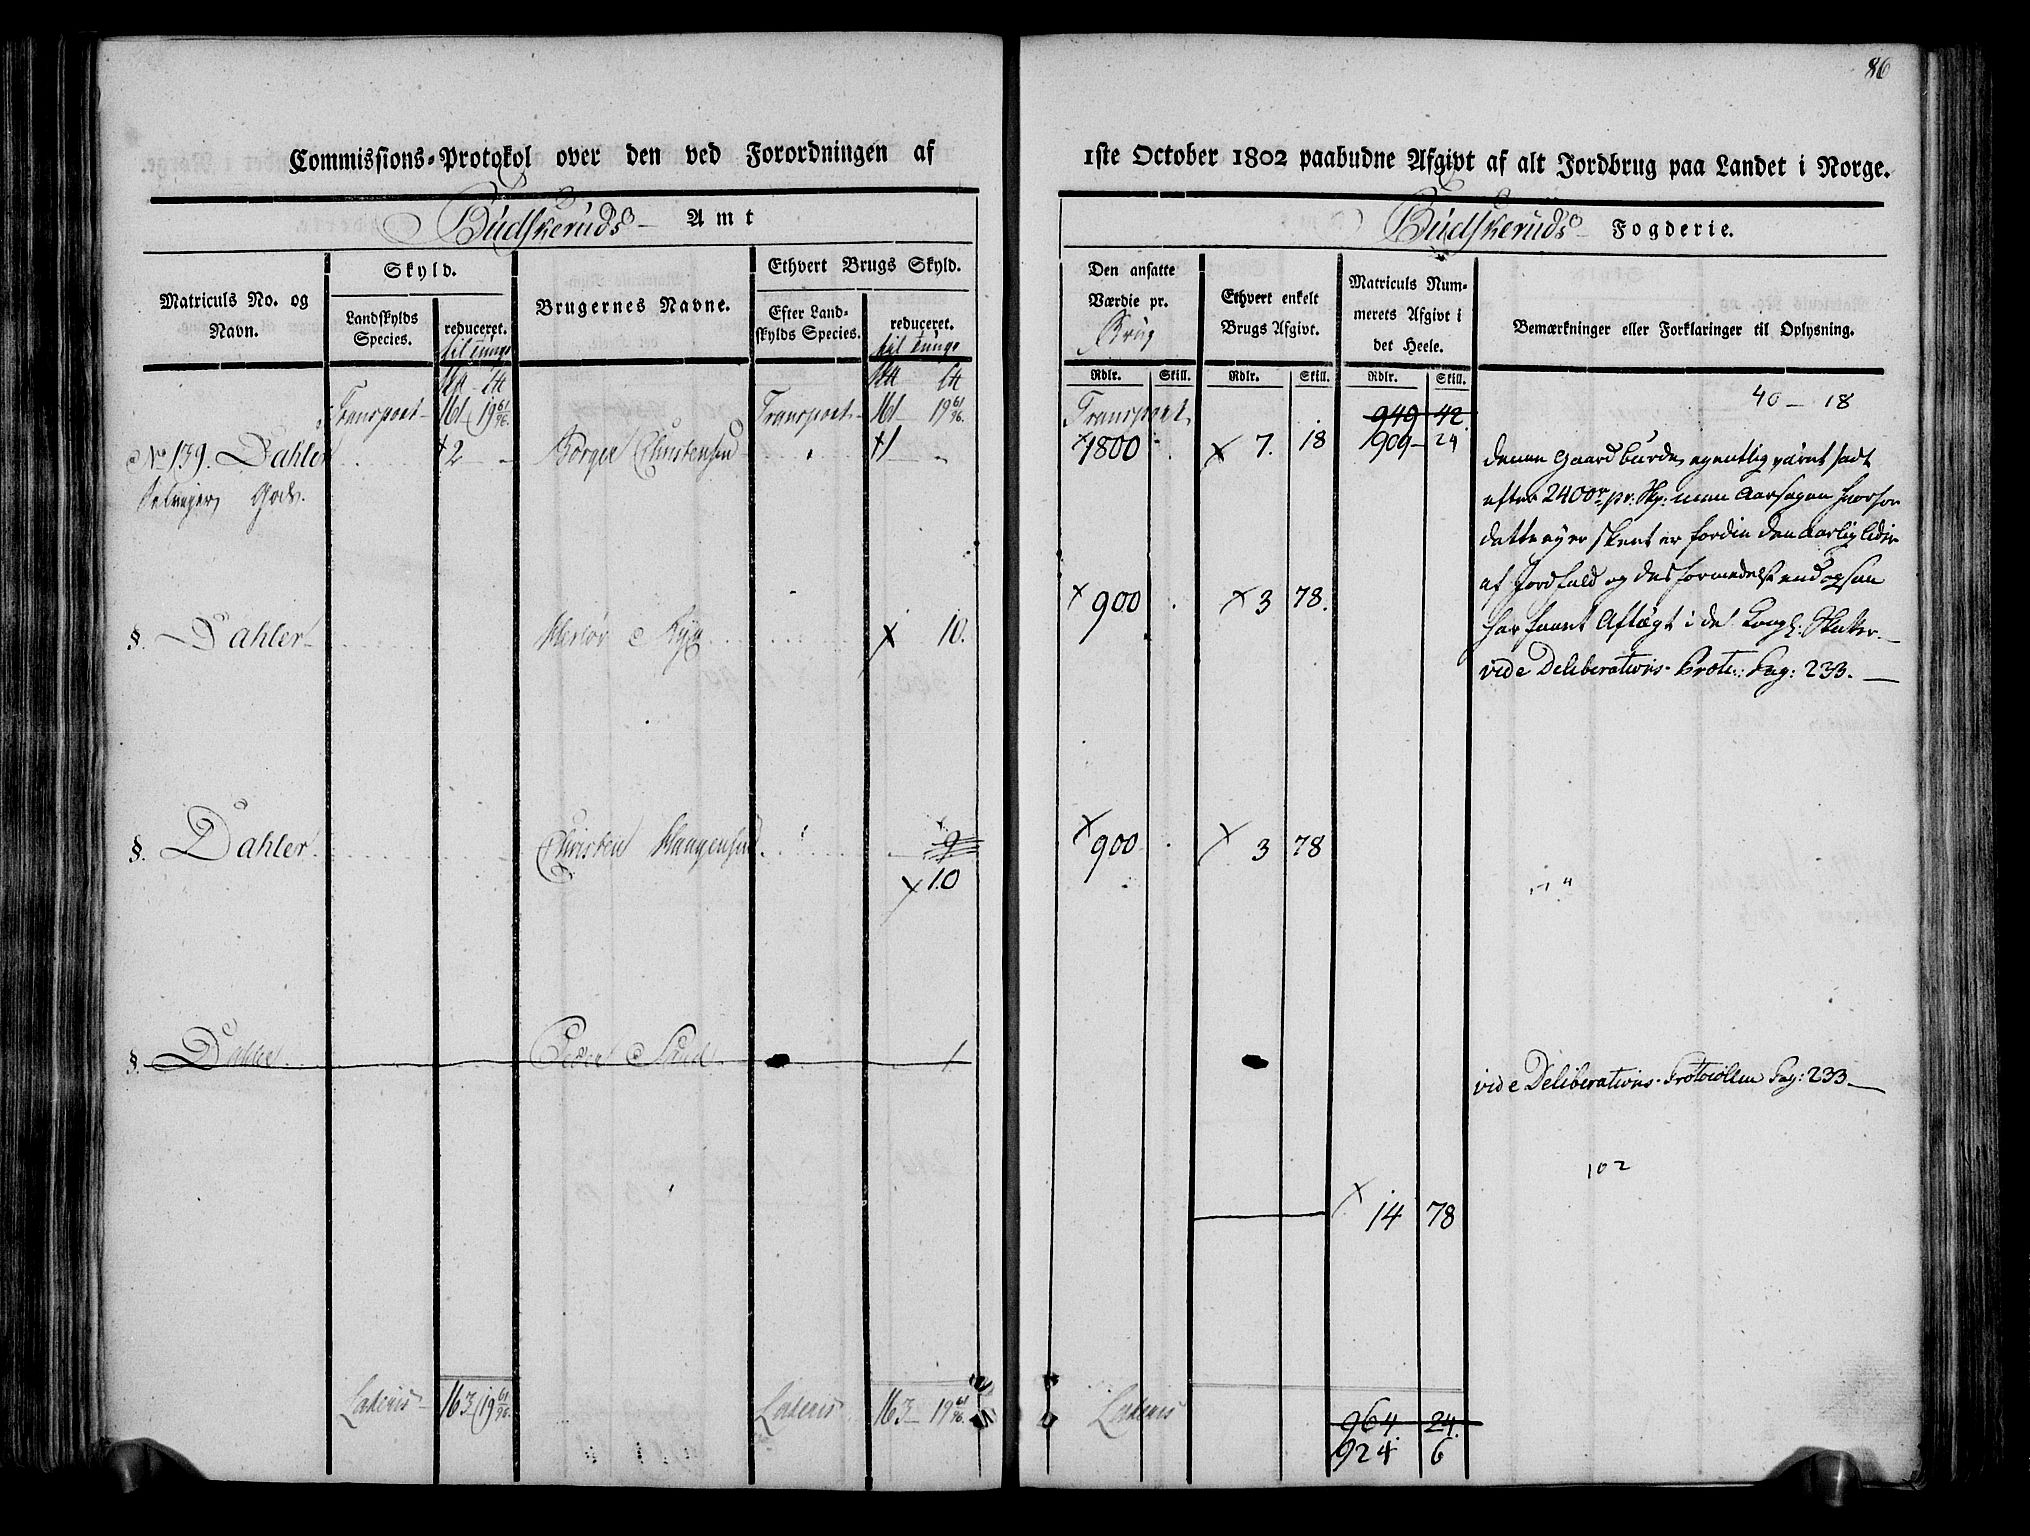 86
Commissions-Protokol over den ved Forordningen af
1ste October 1802 paabudne Afgivt af alt Jordbrug paa Landet i Norge.
Budskeruds Amt
Budskeruds Fogderie.
Matriculs No. og Navn.
Skyld.
Landskylds Species.
reduceret.
til Tunge
Brugernes Navne.
Ethvert Brugs Skyld.
Efter Landskylds Species.
reduceret.
til Tunge
Den ansatte Værdie pr.
Brug
Ethvert enkelt Brugs Afgivt.
Matriculs Nummerets Afgivt i det Heele.
Bemærkninger eller Forklaringer til Oplysning.
Rdlr. Skill. Rdlr. Skill. Rdlr. Skill.
40 - 18
Transport 161 19 61/96 Transport 161 19 61/96 Transport 949 42
No 139. Dahler 2 Borger Christensen 1 1800 7. 18 909 24
Gods.
denne Gaard burde egentlig været sadt
efter 2400 pr. Skp: men Aarsagen hvorfor
dette ey er skeet er fordie den Aarlig lider
af Jordfald og desformedelst endogsaa
har faaet Aftægt i de Kongl. Skatter. —
vide Deliberations-Protc: Pag: 233. —
§. Dahler 10. 900 3 78.
§. Dahler Christen Haagensen 9 900 3 78
10
§. Dahler Peder 1
vide Deliberations-Protocollen Pag: 233 —
102
14 78
Lateris 163 19 61/96 Lateris 163 19 61/96 Lateris 964 24.
924 6